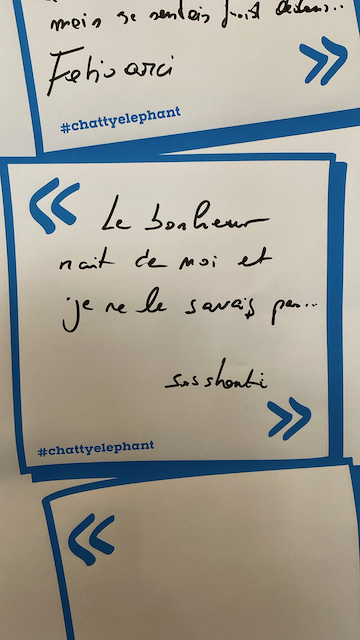 mais je sentais froid dedans..
#chattyelephant
«
Le bonheur
nait de moi et
je ne le savais pas...
»
#chattyelephant
«